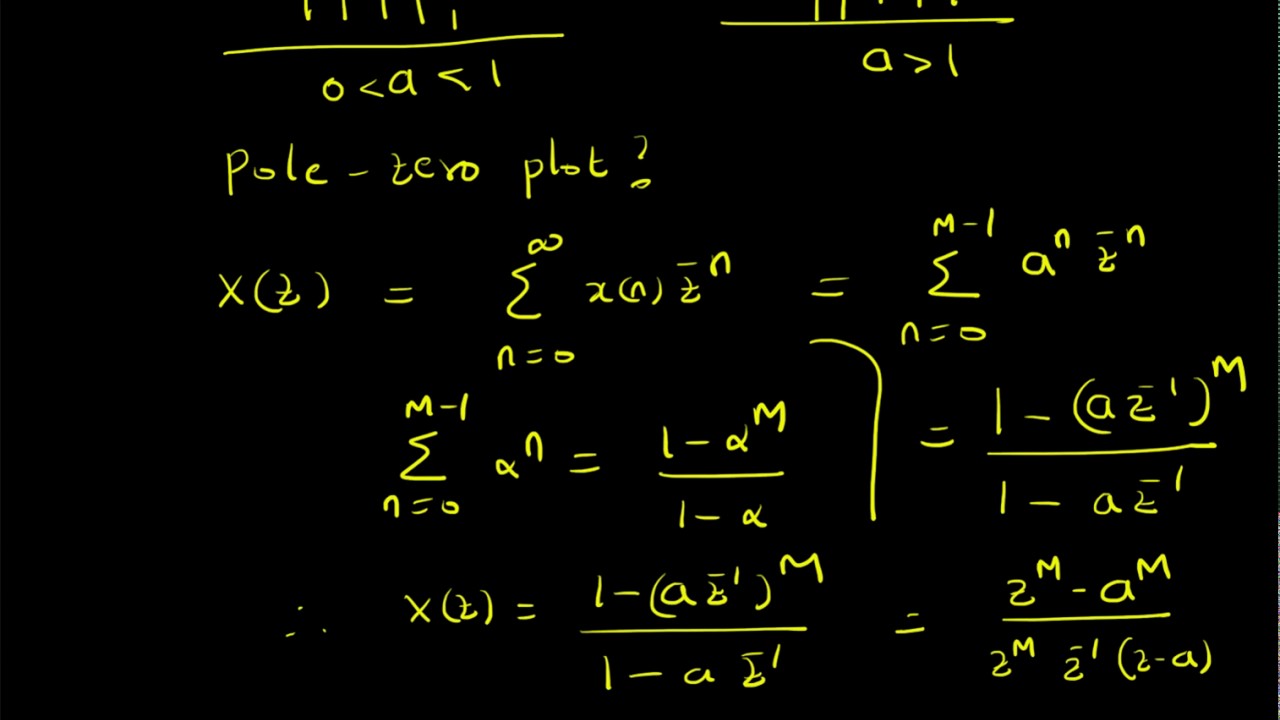 0 < a < 1    a > 1
Pole - zero plot?
X(z) = ∑_{n=0}^{∞} x(n) z^{-n} = ∑_{n=0}^{M-1} a^n z^{-n}
∑_{n=0}^{M-1} α^n = (1 - α^M)/(1 - α)    = (1 - (a z^{-1})^M)/(1 - a z^{-1})
∴ X(z) = (1 - (a z^{-1})^M)/(1 - a z^{-1}) = (z^M - a^M)/(z^M z^{-1} (z - a))